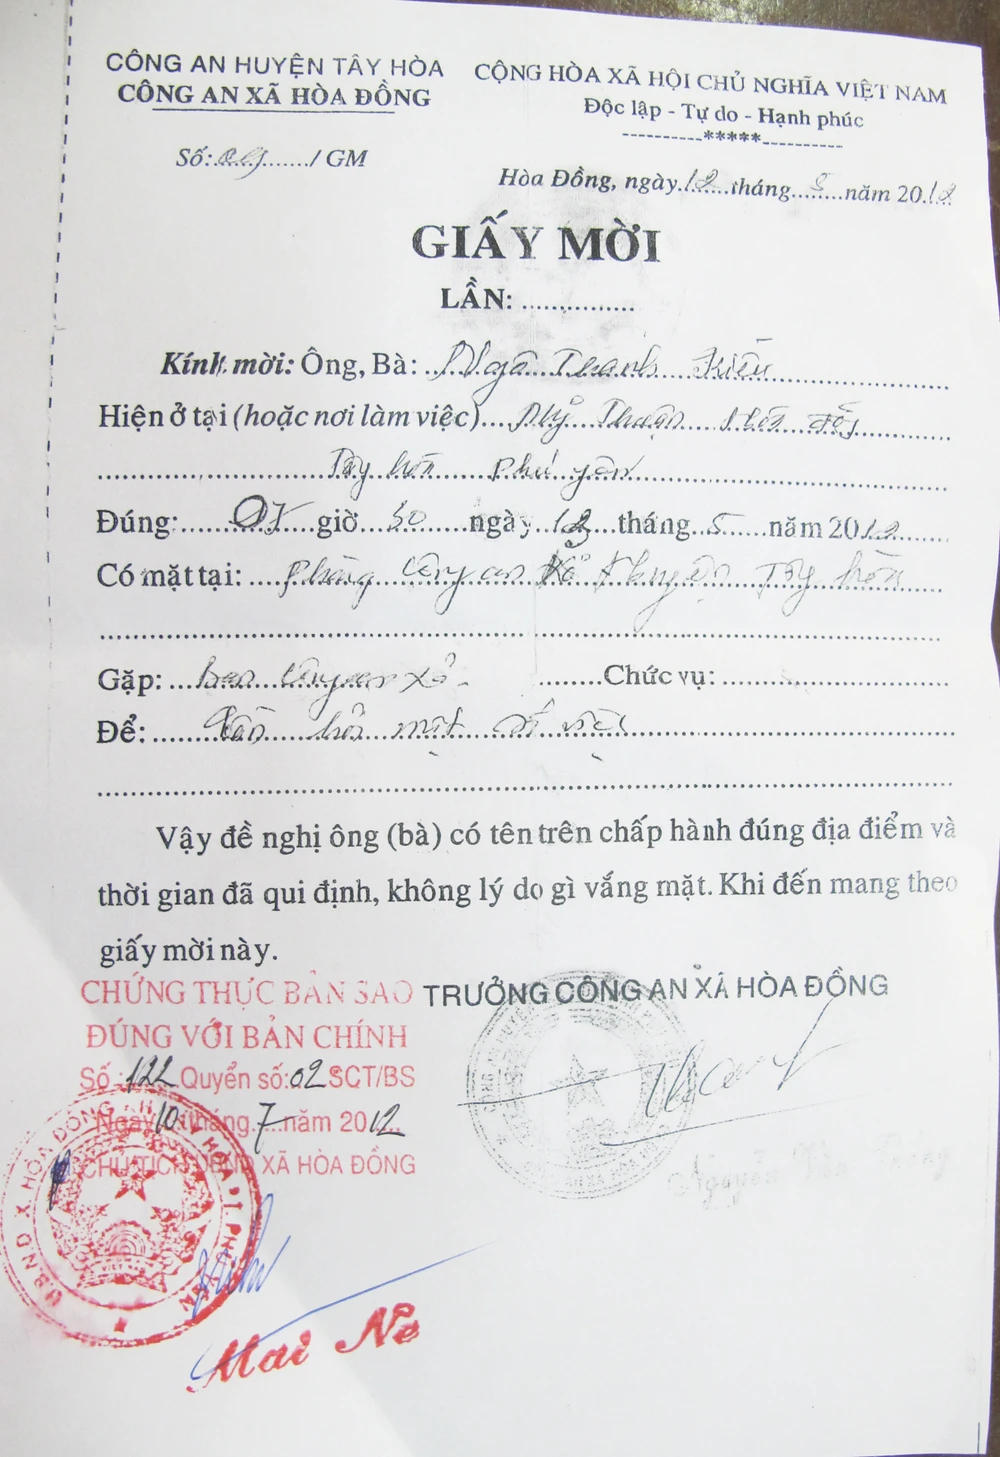 CÔNG AN HUYỆN TÂY HÒA
CÔNG AN XÃ HÒA ĐỒNG
Số:........./ GM
CỘNG HÒA XÃ HỘI CHỦ NGHĨA VIỆT NAM
Độc lập - Tự do - Hạnh phúc
----------*****----------
Hòa Đồng, ngày 12 tháng 5 năm 2012
GIẤY MỜI
LẦN: ..............
Kính mời: Ông, Bà: Ngô Thanh Kiều
Hiện ở tại (hoặc nơi làm việc) Mỹ Thuận
Tây hòa Phú yên
Đúng: giờ 30 ngày 13 tháng 5 năm 2012
Có mặt tại: phòng công an xã Huyện Tây hòa
Gặp: ban công an xã Chức vụ:
Để: Cần hỏi một số việc
Vậy đề nghị ông (bà) có tên trên chấp hành đúng địa điểm và
thời gian đã qui định, không lý do gì vắng mặt. Khi đến mang theo
giấy mời này.
CHỨNG THỰC BẢN SAO
ĐÚNG VỚI BẢN CHÍNH
Số: 122 Quyển số: 02 SCT/BS
Ngày 10 tháng 7 năm 2012
CHỦ TỊCH UBND XÃ HÒA ĐỒNG
TRƯỞNG CÔNG AN XÃ HÒA ĐỒNG
Nguyễn
U.B.N.D X. HÒA ĐỒNG
Mai Ne